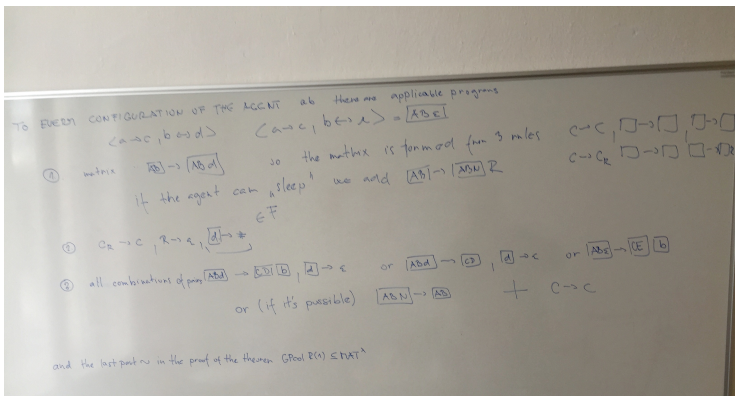 TO EVERY CONFIGURATION OF THE AGENT ab there are applicable programs
<a→c, b↔d> <a→c, b↔ε> = [ABε]
① matrix [AB] → [ABd] so the matrix is formed from 3 rules C→C, □→□, □→□
C→C_R □→□ □→□R
If the agent can "sleep" we add [AB] → [ABN] R
③ C_R → C, R→ε, [d]→* ∈F
② all combinations of pairs [ABd] → [CD] [b], [d]→ε or [ABd] → [CD], [d]→ε or [ABε] → [CE] [b]
or (if it's possible) [ABN] → [AB] + C→C
and the last part in the proof of the theorem